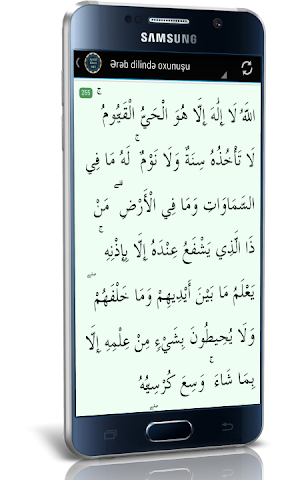 SAMSUNG
Ərəb dilində oxunuşu
255
اللَّهُ لَا إِلَٰهَ إِلَّا هُوَ الْحَيُّ الْقَيُّومُ ۚ
لَا تَأْخُذُهُ سِنَةٌ وَلَا نَوْمٌ ۚ لَهُ مَا فِي
السَّمَاوَاتِ وَمَا فِي الْأَرْضِ ۗ مَنْ
ذَا الَّذِي يَشْفَعُ عِنْدَهُ إِلَّا بِإِذْنِهِ ۚ
يَعْلَمُ مَا بَيْنَ أَيْدِيهِمْ وَمَا خَلْفَهُمْ ۖ
وَلَا يُحِيطُونَ بِشَيْءٍ مِنْ عِلْمِهِ إِلَّا
بِمَا شَاءَ ۚ وَسِعَ كُرْسِيُّهُ